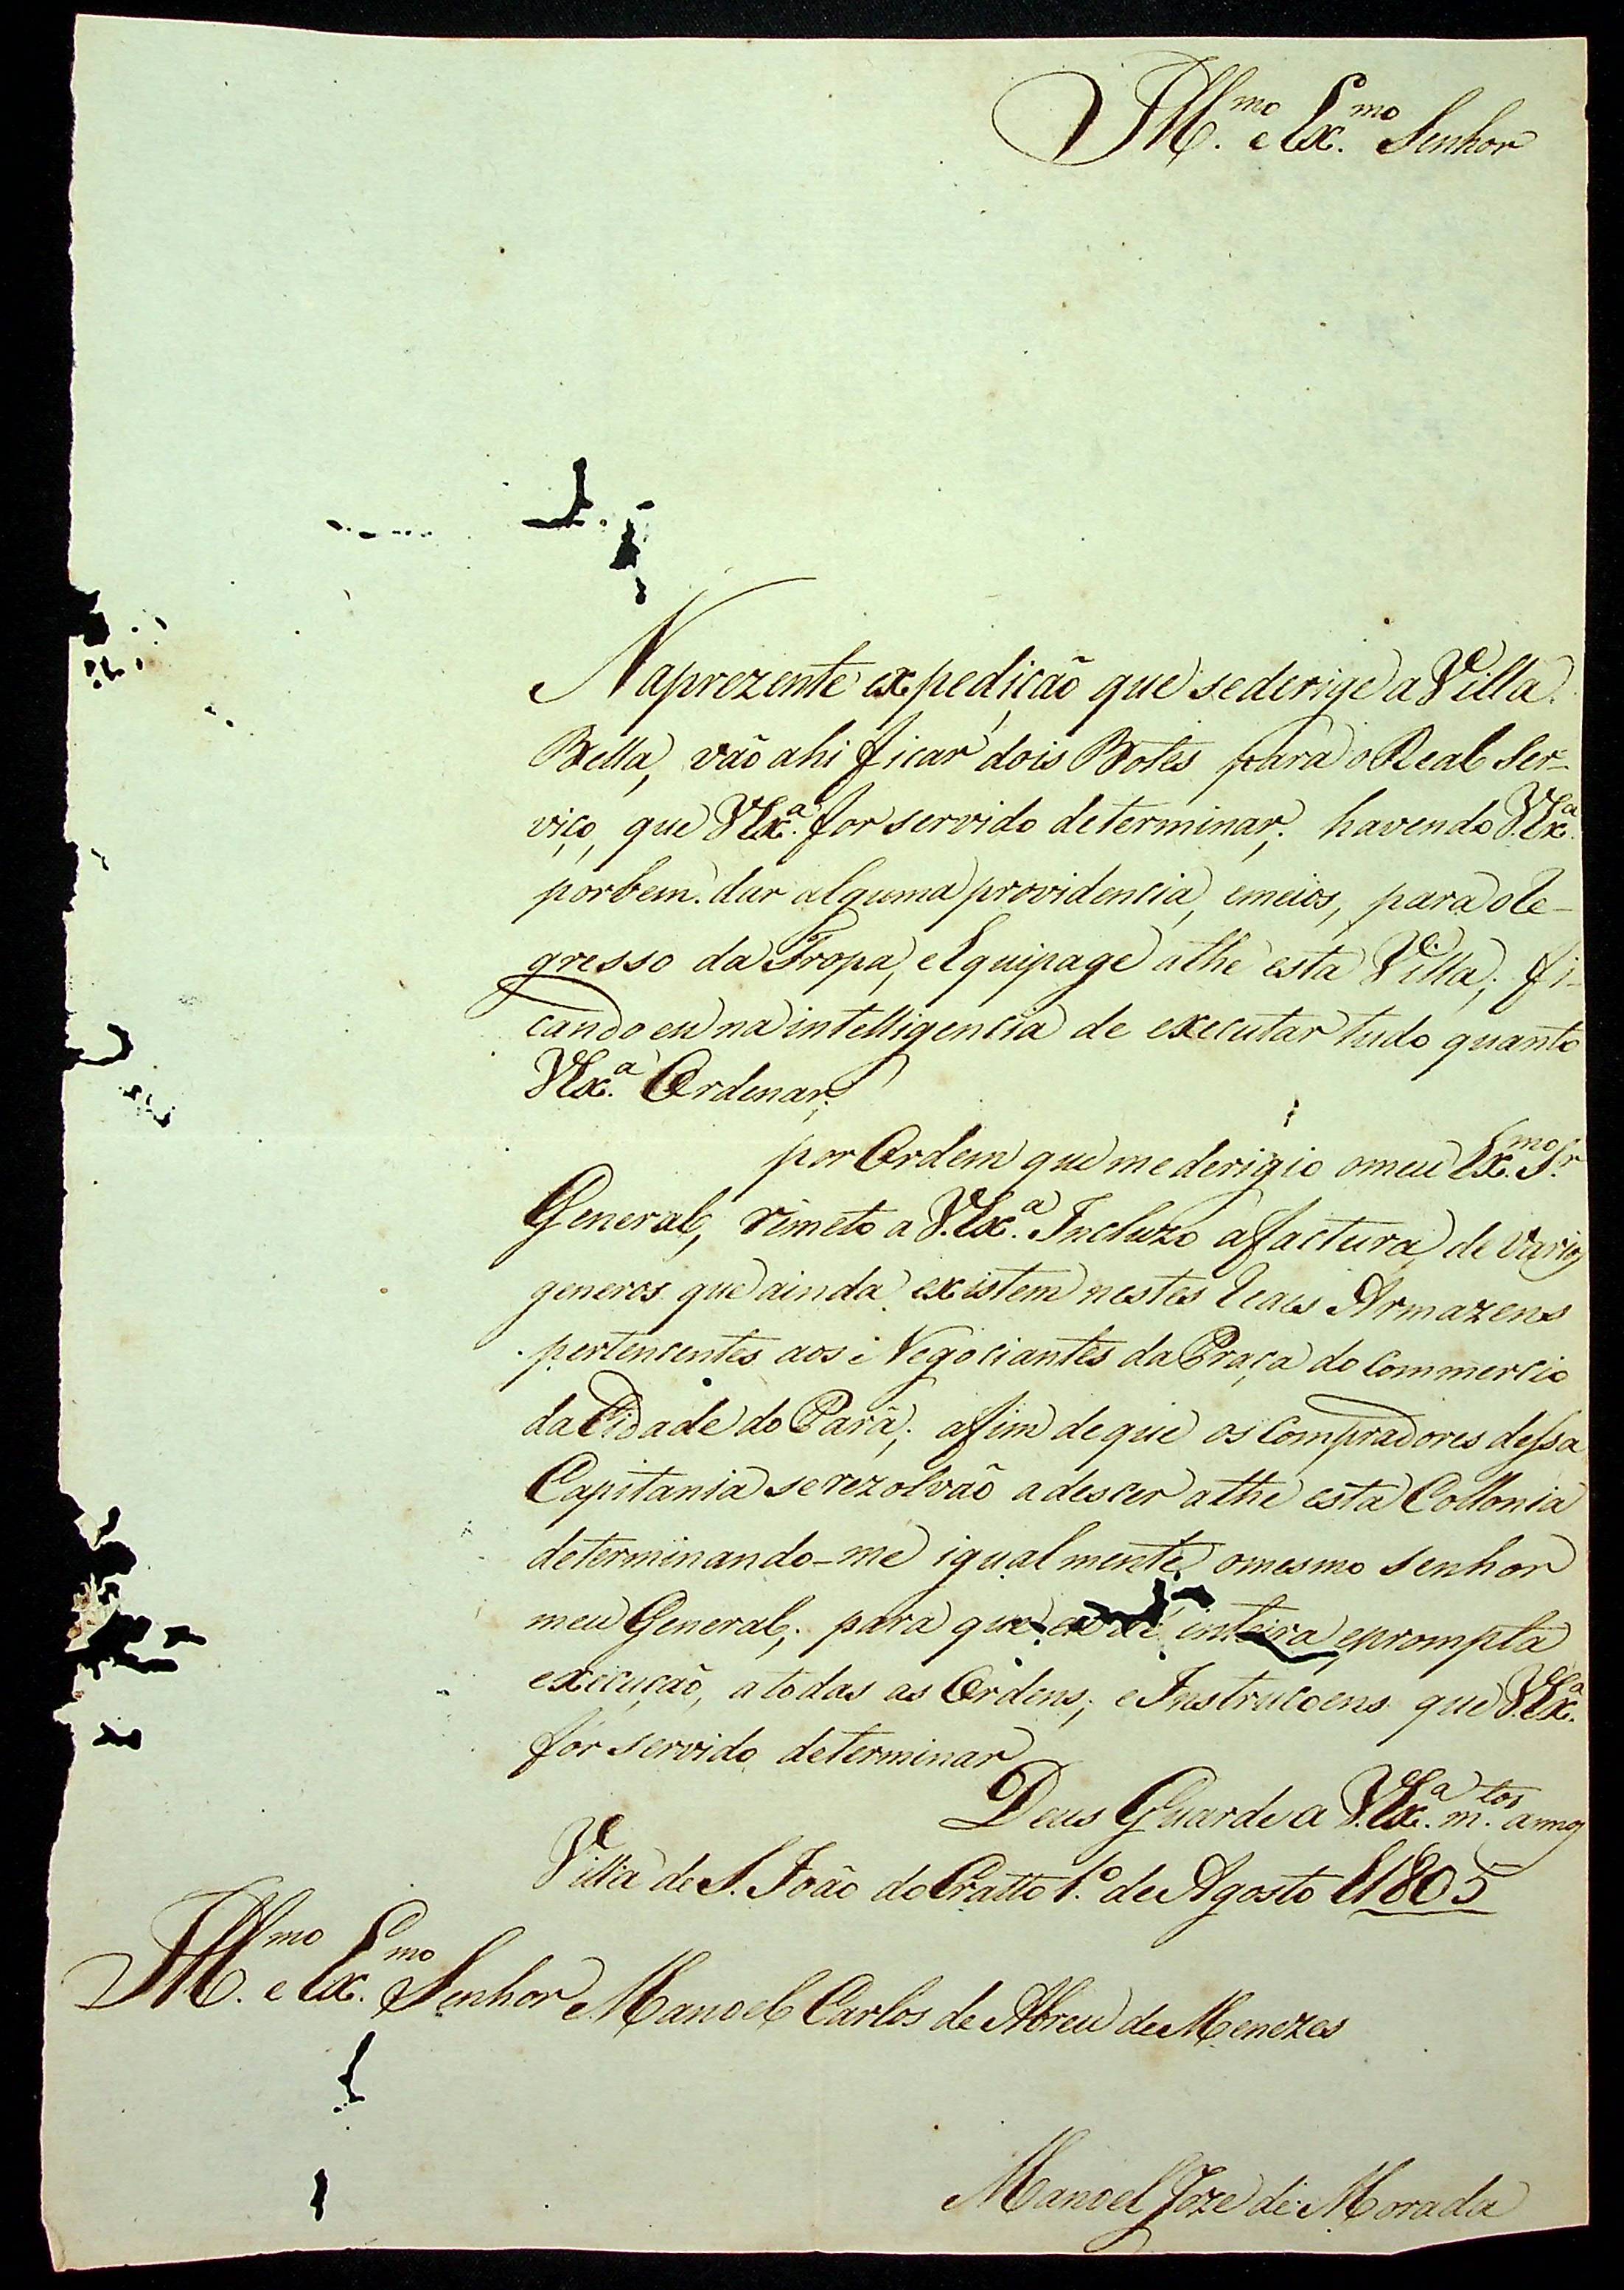 Ill.mo e Ex.mo Senhor
Na prezente expedição que se derige a Villa
Bella, vão ahi ficar dois Botes para o Real Ser-
viço, que VEx.a for servido determinar; havendo V.Ex.a
por bem dar alguma providencia, e meios, para o Re-
gresso da Tropa, e Equipage athe esta Villa; fi-
cando eu na intelligencia de executar tudo quanto
VEx.a Ordenar;
por Ordem que me derigio o meu Ex.mo S.r
General, rimeto a V.Ex.a Incluzo a factura, de varios
generos que ainda existem nestes Reaes Armazens
pertencentes aos Negociantes da Praça do Commercio
da Cidade do Pará; afim de que os Compradores dessa
Capitania se rezolvão a descer athe esta Collonia
determinando-me igualmente o mesmo senhor
meu General, para que eu dê inteira, e prompta
execução, a todas as Ordens, e Instrucoens que V.Ex.a
for servido determinar
Deus Guarde a V.Ex.a m.tos annos
Villa de S. João do Cratto 1.o de Agosto d 1805
Ill.mo e Ex.mo Senhor Manoel Carlos de Abreu de Menezes
Manoel Joze de Morada